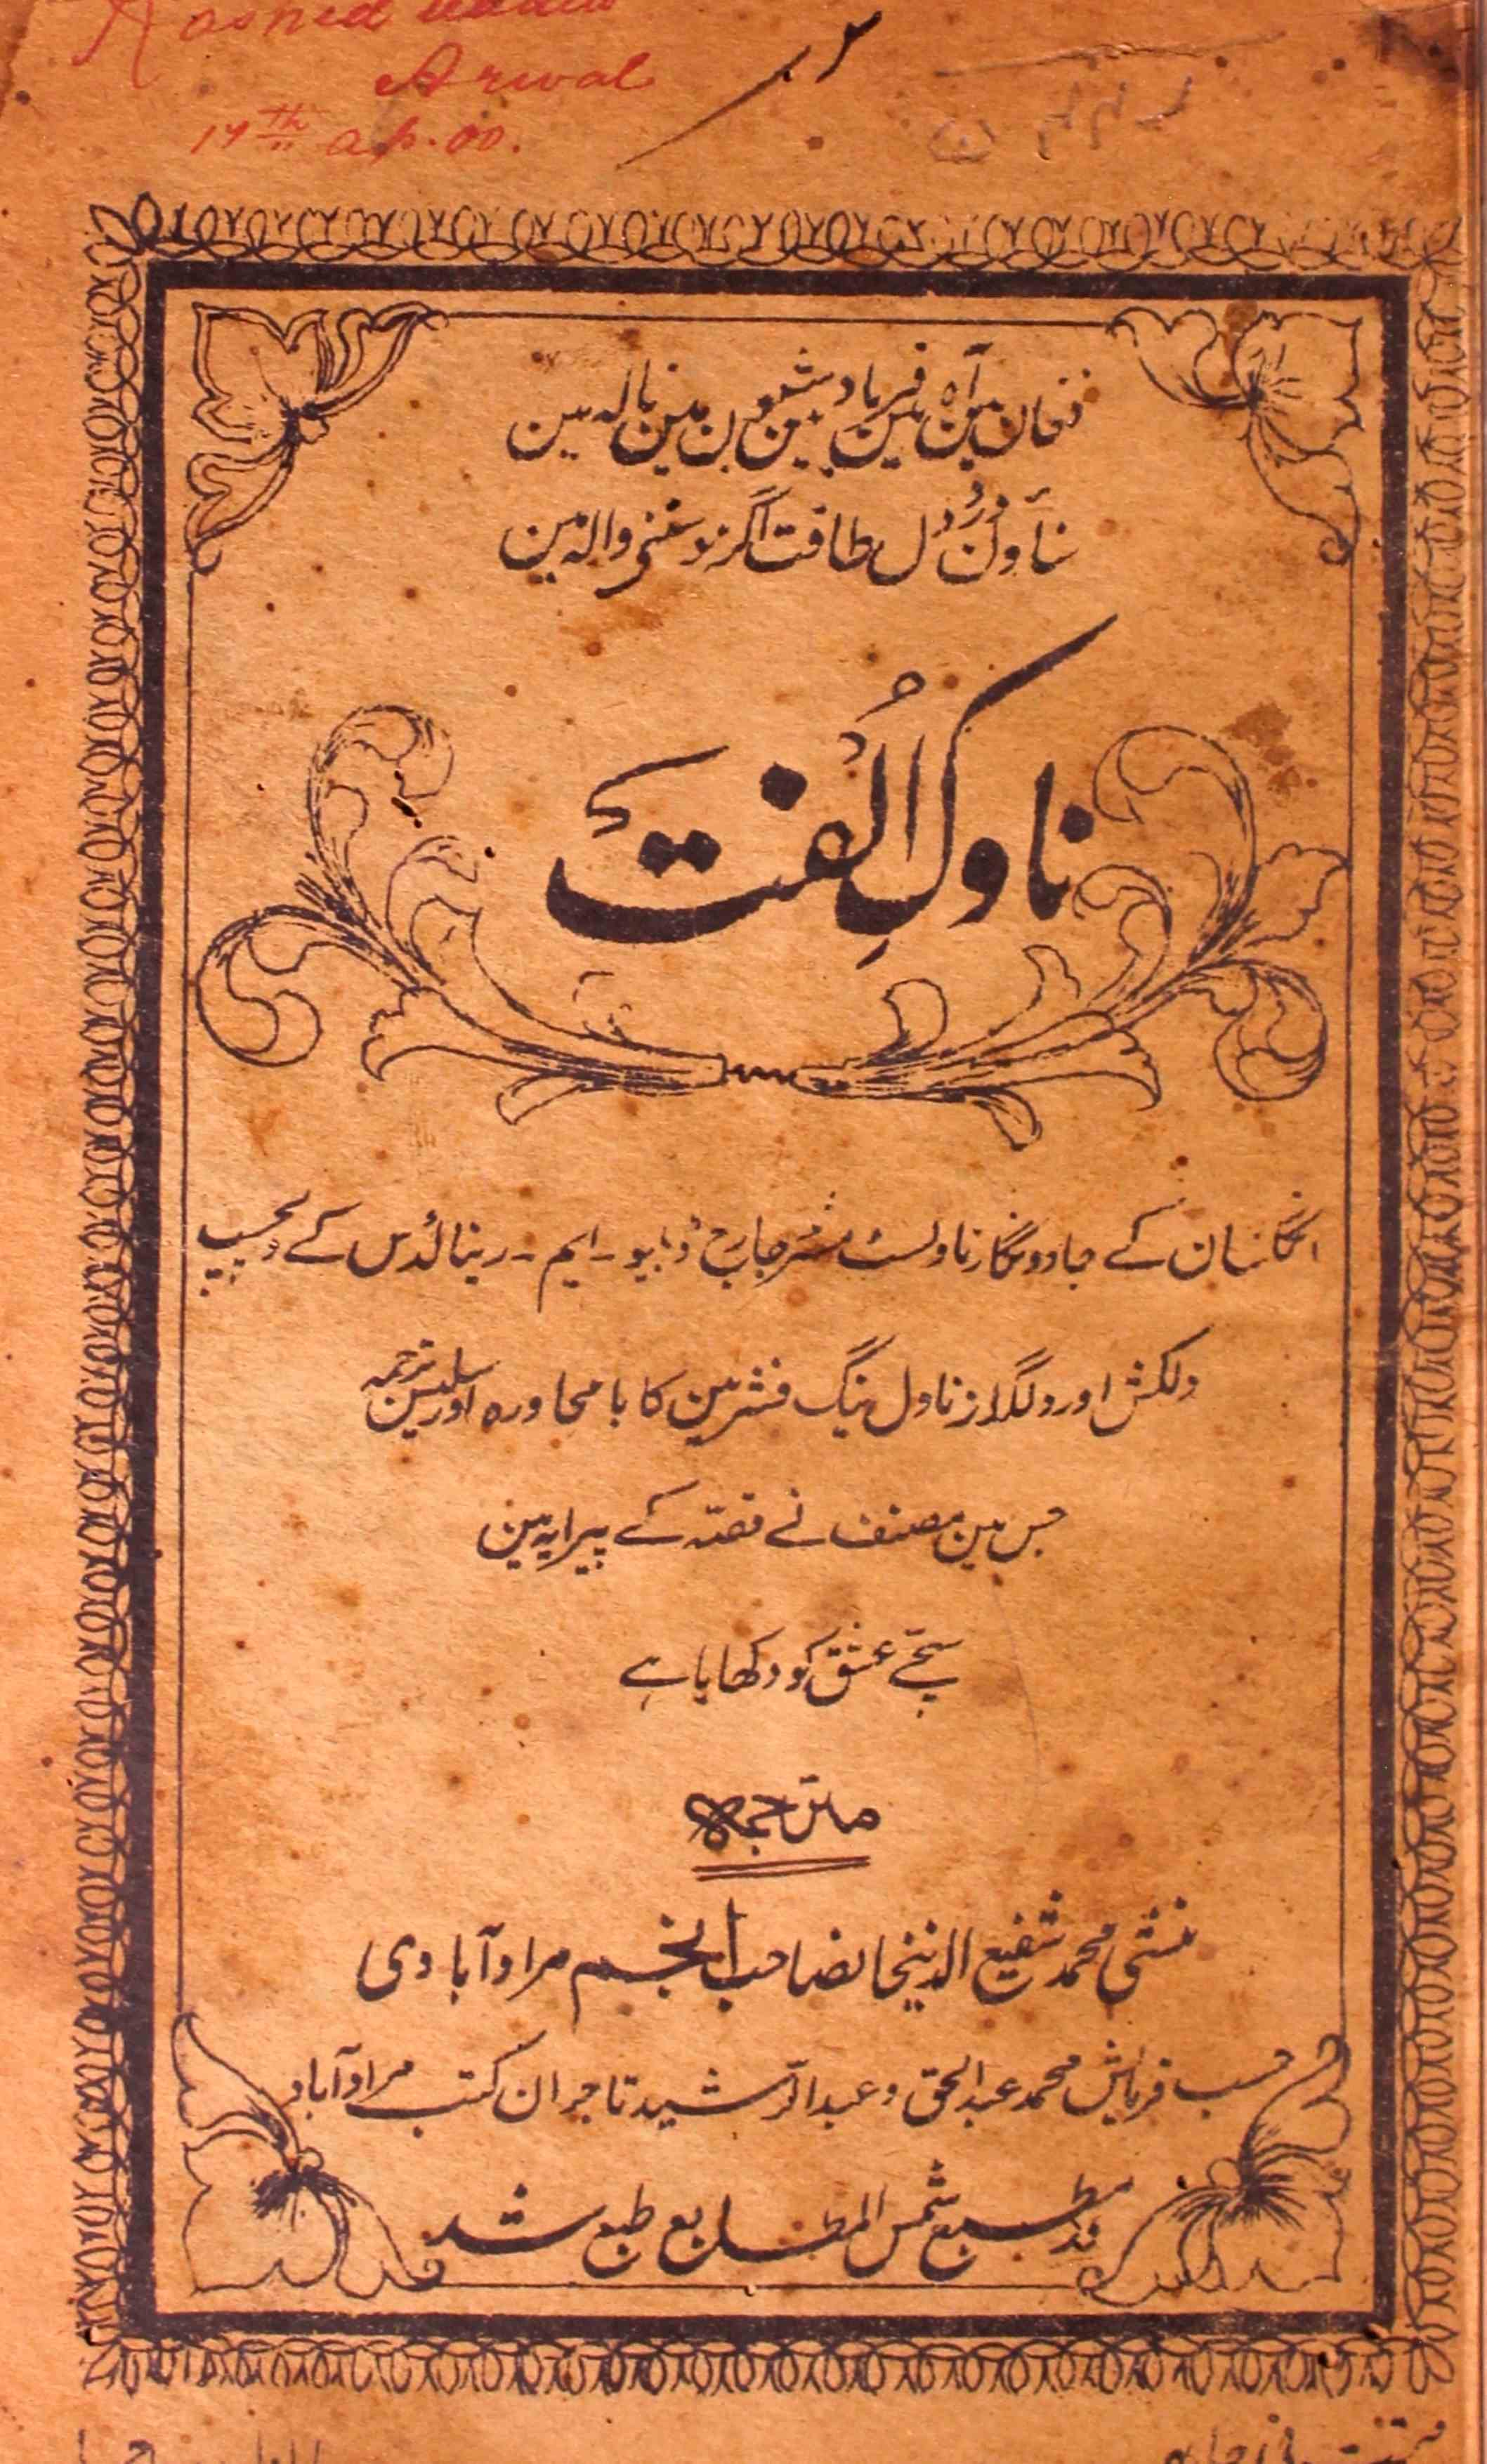 Rashed
Arwal
17th ap. 00.
فغان مین آہ مین فریاد مین شیون مین نالہ مین
سناؤن درد دل طاقت اگر ہو سننے والہ مین
ناوکِ اُلفت
انگلستان کے جادو نگار ناولسٹ مسٹر جارج ڈبلیو - ایم - رینالڈس کے دلچسپ
دلکش اور دلگداز ناول ینگ فشرمین کا با محاورہ اور سلیس ترجمہ
جس مین مصنف نے قصّہ کے پیرایہ مین
سچّے عشق کو دکھایا ہے
مترجمہ
منشی محمد شفیع الدینخانصاحب انجم مرادآبادی
حسب فرمایش محمد عبدالحق و عبدالرّشید تاجران کتب مرادآباد
در مطبع شمس المطابع طبع شد